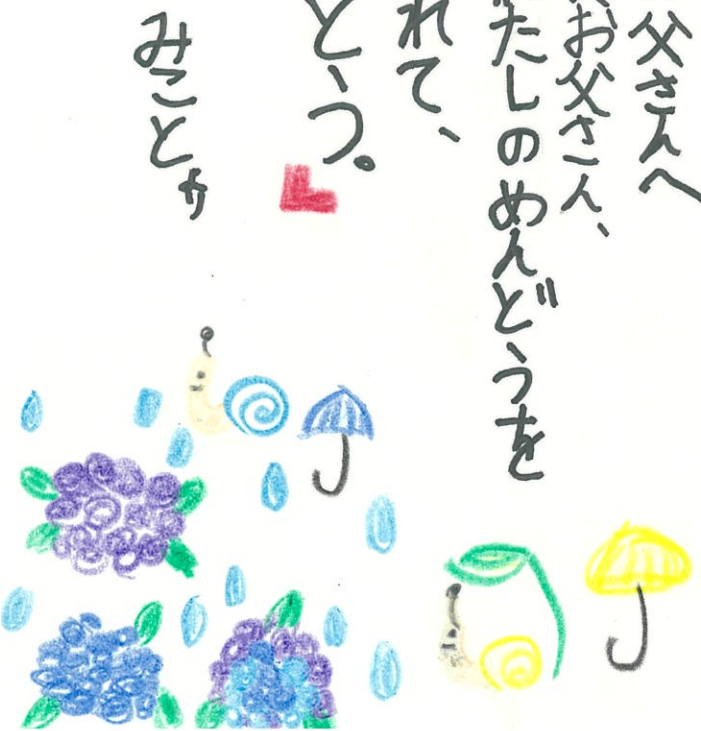 父さんへ
お父さん、
たしのめんどうを
れて、
とう。
みことより